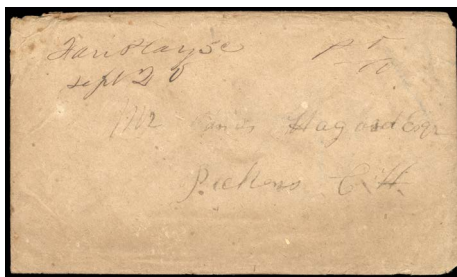 Fair Play SC
Sept 28
Mr James Hagood Esqr
Pickens C.H.